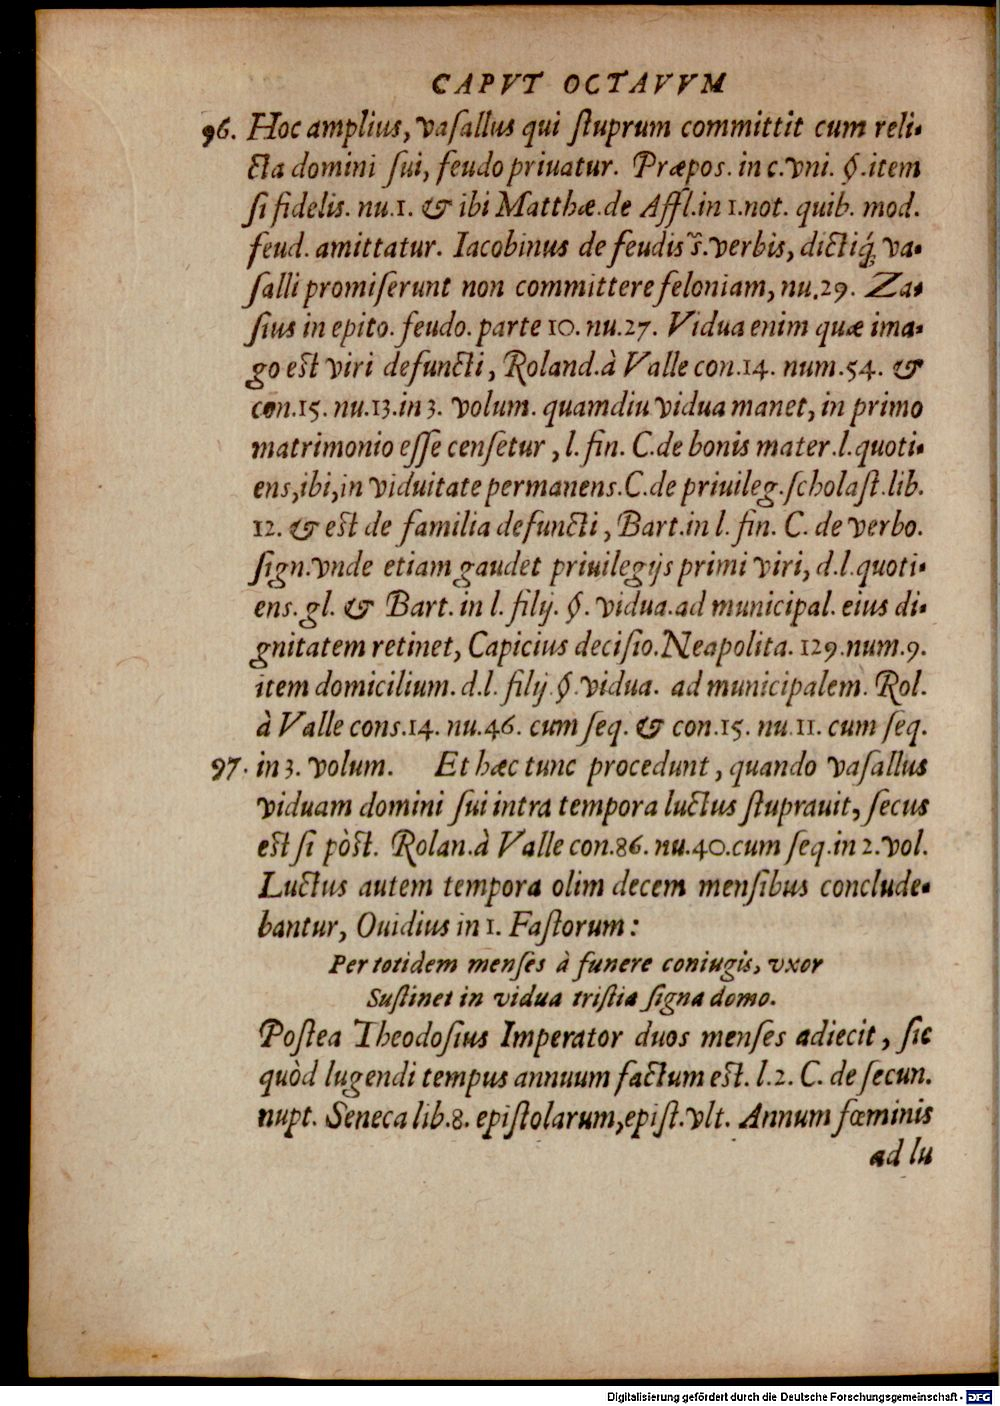 CAPVT OCTAVVM
96. Hoc amplius, vasallus qui stuprum committit cum reli-
cta domini sui, feudo priuatur. Præpos. in c. vni. §. item
si fidelis. nu. 1. & ibi Matthæ. de Affl. in 1. not. quib. mod.
feud. amittatur. Iacobinus de feudis s̃. verbis, dictiq́; va-
salli promiserunt non committere feloniam, nu. 29. Za-
sius in epito. feudo. parte 10. nu. 27. Vidua enim quæ ima-
go est viri defuncti, Roland. à Valle con. 14. num. 54. &
con. 15. nu. 13. in 3. volum. quamdiu vidua manet, in primo
matrimonio esse censetur, l. fin. C. de bonis mater. l. quoti-
ens, ibi, in viduitate permanens. C. de priuileg. scholast. lib.
12. & est de familia defuncti, Bart. in l. fin. C. de verbo.
sign. vnde etiam gaudet priuilegijs primi viri, d. l. quoti-
ens. gl. & Bart. in l. filij. §. vidua. ad municipal. eius di-
gnitatem retinet, Capicius decisio. Neapolita. 129. num. 9.
item domicilium. d. l. filij §. vidua. ad municipalem. Rol.
à Valle cons. 14. nu. 46. cum seq. & con. 15. nu. 11. cum seq.
97. in 3. volum. Et hæc tunc procedunt, quando vasallus
viduam domini sui intra tempora luctus stuprauit, secus
est si pòst. Rolan. à Valle con. 86. nu. 40. cum seq. in 2. vol.
Luctus autem tempora olim decem mensibus conclude-
bantur, Ouidius in 1. Fastorum:
Per totidem menses à funere coniugis, vxor
Sustinet in vidua tristia signa domo.
Postea Theodosius Imperator duos menses adiecit, sic
quòd lugendi tempus annuum factum est. l. 2. C. de secun.
nupt. Seneca lib. 8. epistolarum, epist. vlt. Annum fœminis
ad lu
Digitalisierung gefördert durch die Deutsche Forschungsgemeinschaft - DFG